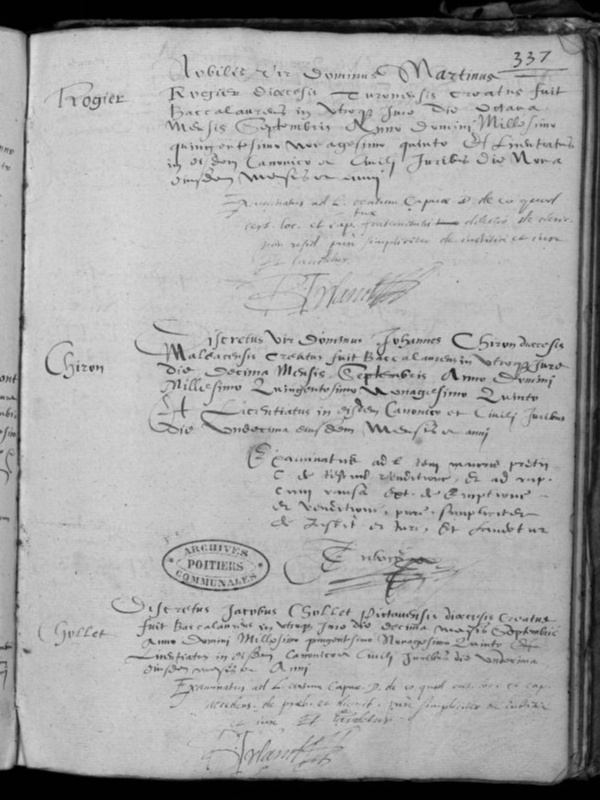 337
Nobilis vir Dominus Martinus
Rogier
Rogier diocesis Turonensis creatus fuit
Baccalaureus in utroq Jure die octava
Mensis Septembris Anno Domini Millesimo
quingentesimo Nonagesimo quinto Et Licentiatus
in eisdem Canonico et Civili Juribus die Nona
eiusdem Mensis et anni
Examinatus ad L. de eo quod
cert. loc. et cap.
pure simpliciter de justitia et jure
et laudetur
Irland
Discretus vir Dominus Johannes Chiron diocesis
Chiron
Maleacensis Creatus fuit Baccalaureus in utroq Jure
die decima Mensis Septembris Anno Domini
Millesimo Quingentesimo Nonagesimo Quinto
Et Licentiatus in eisdem Canonico et Civili Juribus
die Undecima eiusdem Mensis et anni
Examinatus ad L
C. de venditione, et ad cap.
cum causa ext. de Emptione
et venditione, pure simpliciter
de Justit. et Jure, Et laudetur
ARCHIVES
POITIERS
COMMUNALES
Discretus Jacobus Chollet Pictavensis diocesis Creatus
Chollet
fuit Baccalaureus in utroq Jure die decima mensis Septembris
Anno Domini Millesimo quingentesimo Nonagesimo Quinto Et
Licentiatus in eisdem Canonico et Civili Juribus die Undecima
eiusdem mensis et Anni
Examinatus ad L. de eo quod cap.
de preb. et dignit. pure simpliciter de justitia
et jure Et laudetur
Irland